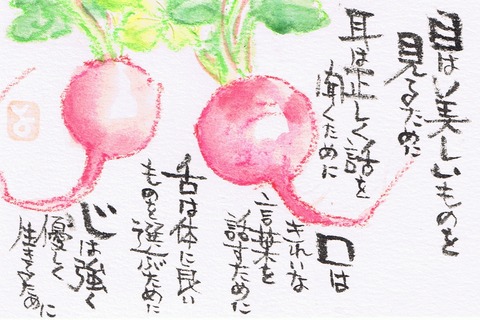 目は美しいものを
見るために
耳は正しく話を
聞くために
口は
きれいな
言葉を
話すために
舌は体に良い
ものを選ぶために
心は強く
優しく
生きるために